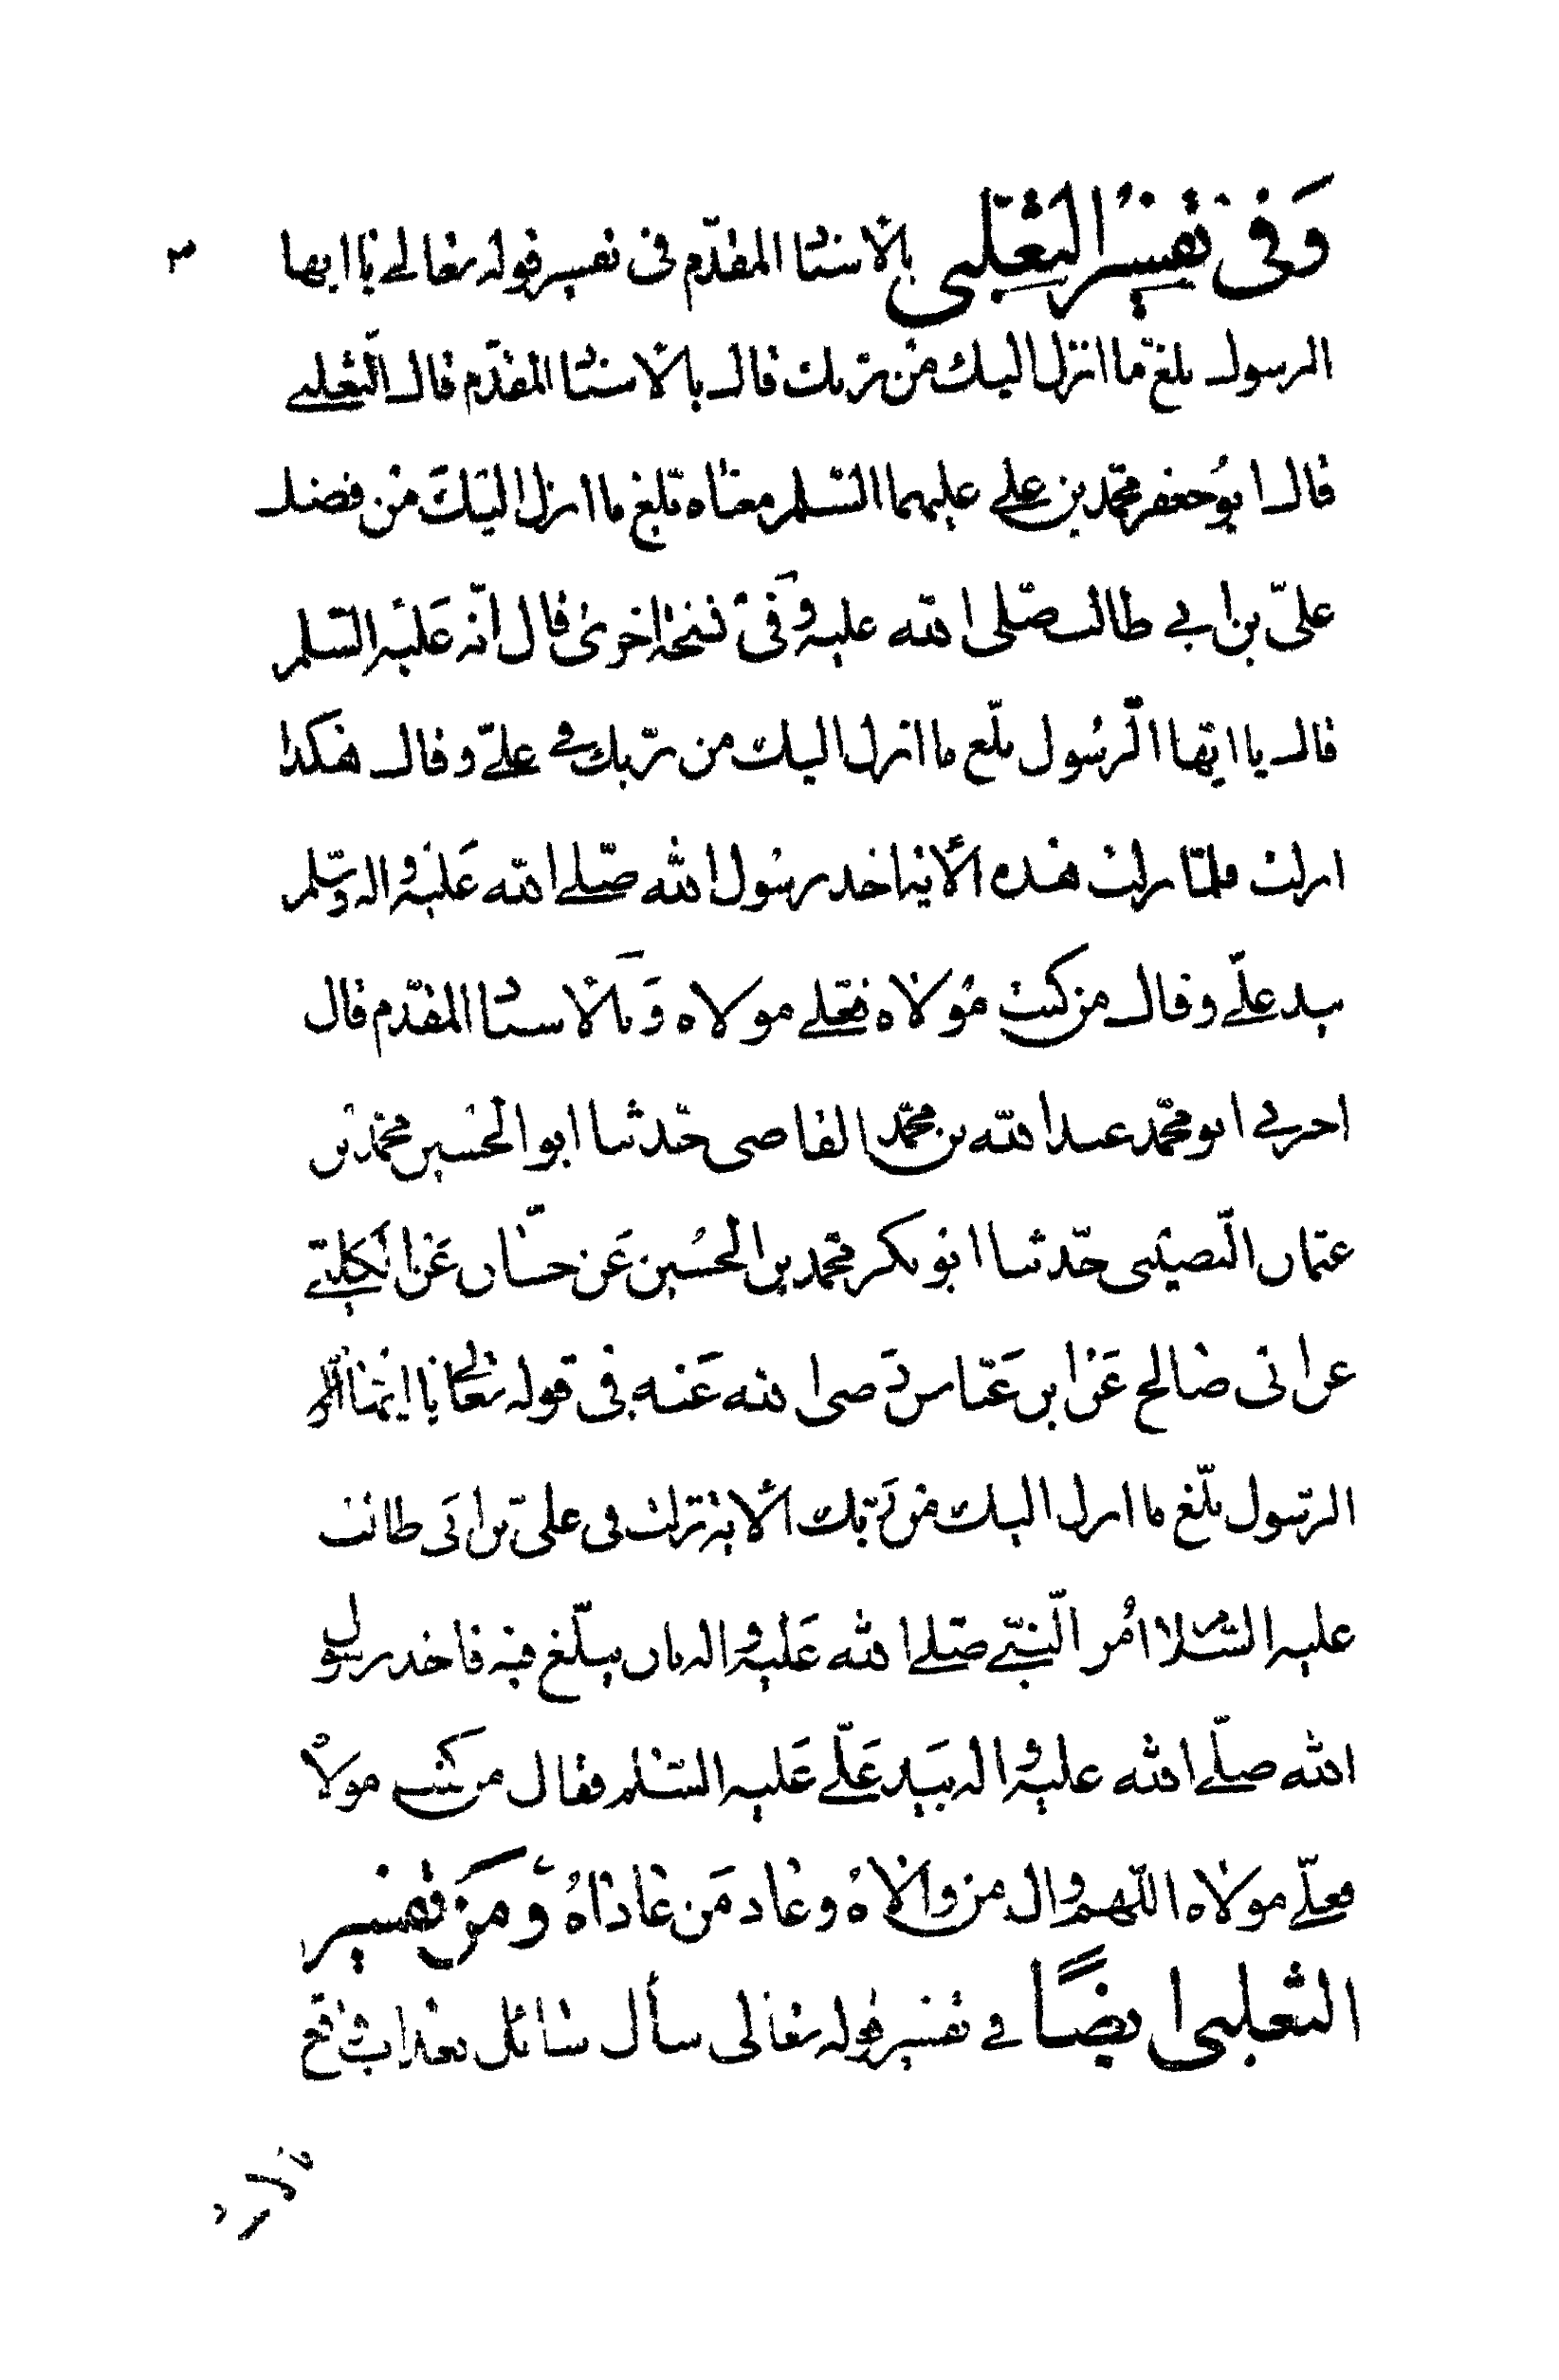 وَفي تفسير الثعلبي بالاسناد المقدّم في تفسير قوله تعالى يا ايها
الرسول بلغ ما انزل اليك من ربك قال بالاسناد المقدّم قال الثعلبي
قال ابو جعفر محمّد بن علي عليهما السّلم معناه بلّغ ما انزل اليك من فضل
عليّ بن ابي طالب صلى الله عليه وفي نسخة اخرى قال انّه عَليه السّلم
قال يا ايّها الرّسُول بلّغ ما انزل اليك من ربّك في عليّ و قال هكذا
انزلت فلمّا نزلت هذه الأية اخذ رسُول الله صلّى الله عَليه واله وسلّم
بيد علّي و قال من كنت مولاه فعلي مولاه وَبالاسناد المقدّم قال
اخبرني ابو محمّد عبد الله بن محمّد القاضي حدّثنا ابو الحسين محمّد بن
عثمان النّصيبي حدّثنا ابو بكر محمّد بن الحسُين عَن حسّان عَن الكلبّي
عن ابي صالح عَن ابن عَبّاس رَضى الله عَنه في قوله تعالى يا ايّها
الرّسول بلّغ ما انزل اليك من رَبّك الأية نزلت في عليّ بن ابَي طالب
عليه السّلام اُمر النّبيّ صلّى الله عَليه واله بان يبلّغ فيه فاخذ رسول
الله صلّى الله عليه واله بيَد عَلّي عَليه السّلم فقال من كنت مولاه
فعلّي مولاه اللّهم وال من والاهُ وعاد مَن عاداهُ وَمن تفسير
الثعلبي ايضًا في تفسير قوله تعالى سأل سائل بعذاب واقع